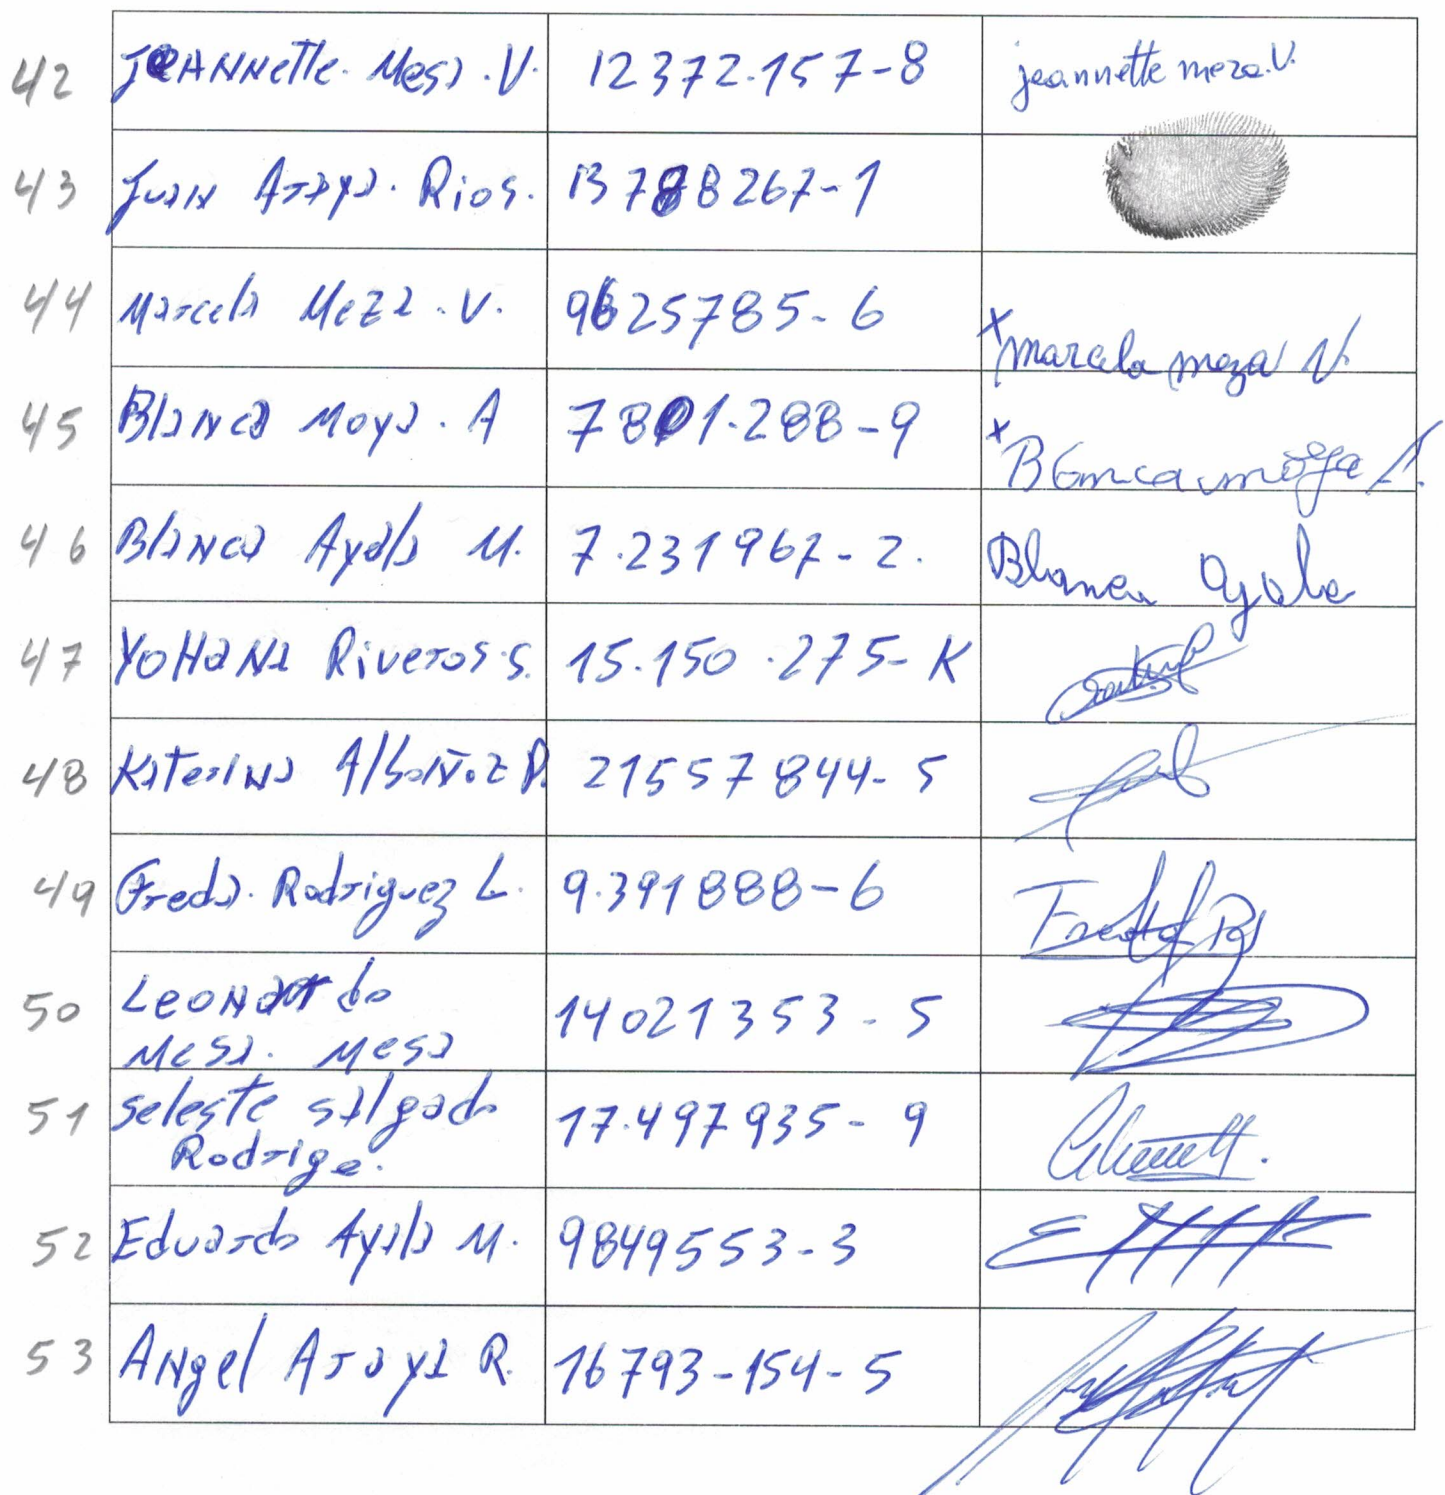 42 Jeannette. Mesa. V. 12372.157-8 jeannette meza.V.
43 Juan Araya. Rios. 13788267-1
44 Marcela Meza. V. 9625785-6 x marcela meza V.
45 Blanca Moya. A 7801.288-9 x Blanca moya A.
46 Blanca Ayala M. 7.231967-2. Blanca Ayala
47 YoHana Riveros.S. 15.150.275-K
48 Katerina Albornoz 21557844-5
49 Freda. Rodriguez L. 9.391888-6
50 Leonardo 14021353-5
Mesa. Mesa
51 seleste salgado 17.497935-9
Rodrige.
52 Eduardo Ayala M. 9849553-3
53 Angel Araya R. 16793-154-5